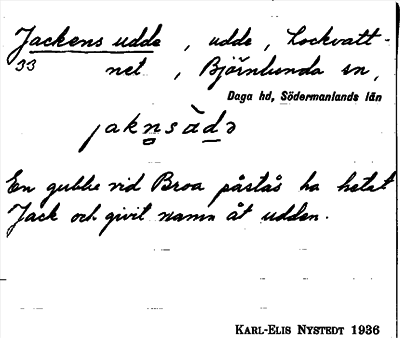 Jackens udde , udde , Lockvatt-
33 net , Björnlunda sn,
Daga hd, Södermanlands län
jaknsàdə
En gubbe vid Broa påstås ha hetat
Jack och givit namn åt udden.
KARL-ELIS NYSTEDT 1936